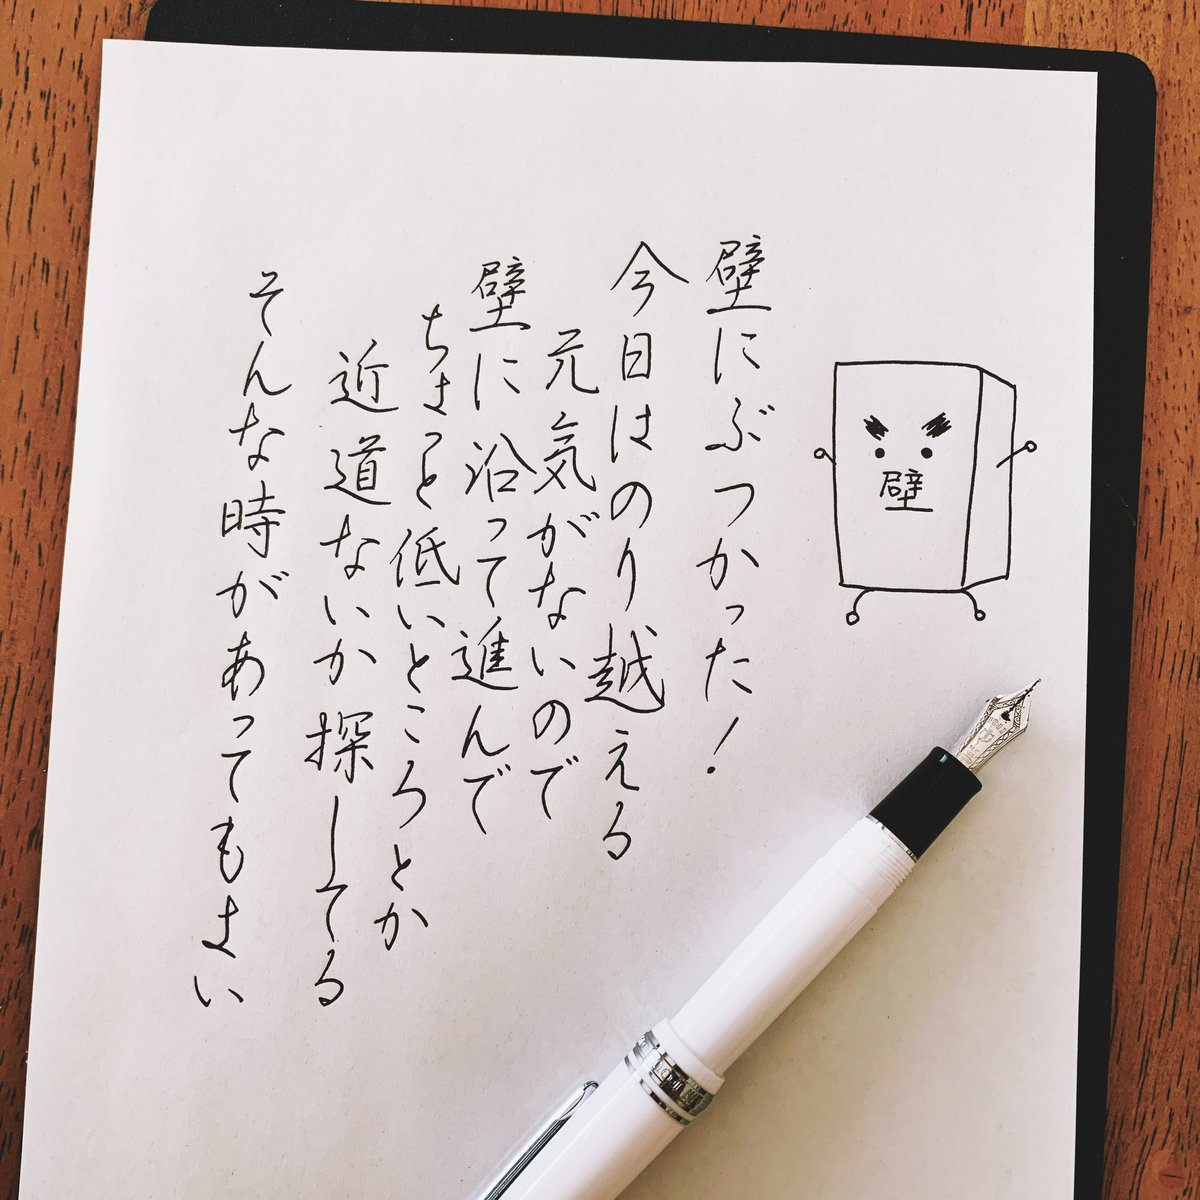 壁にぶつかった!
今日はのり越える
元気がないので
壁に沿って進んで
ちょっと低いところとか
近道ないか探してる
そんな時があってもよい
壁